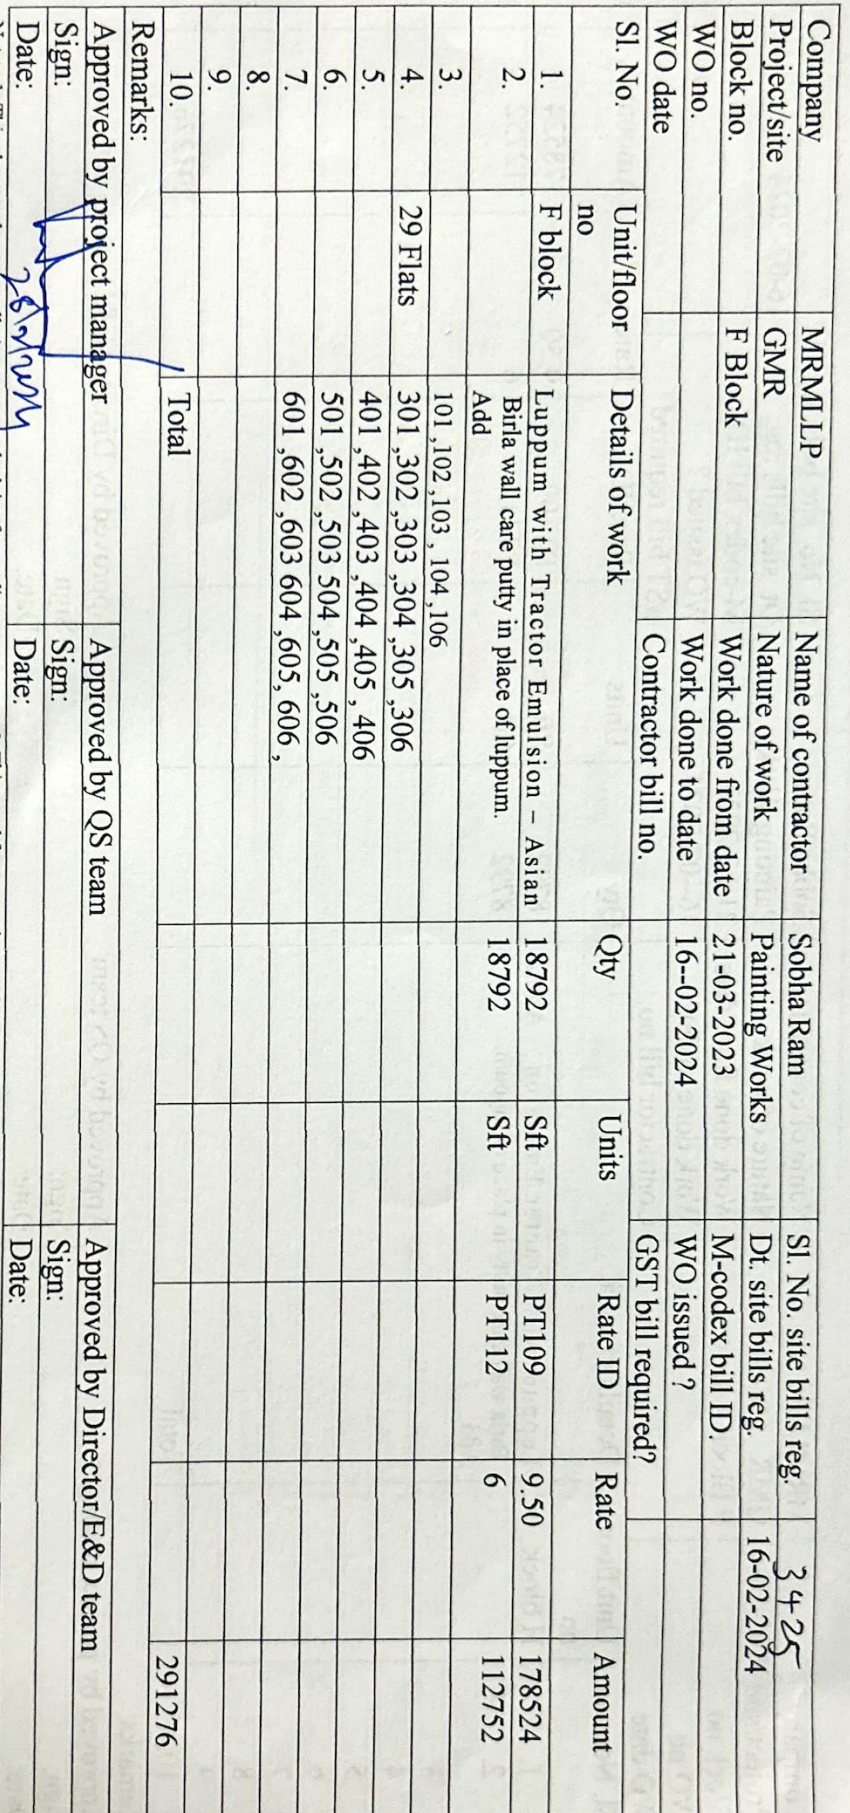 Company MRMLLP Name of contractor Sobha Ram Sl. No. site bills reg. 3425
Project/site GMR Nature of work Painting Works Dt. site bills reg. 16-02-2024
Block no. F Block Work done from date 21-03-2023 M-codex bill ID
WO no. Work done to date 16--02-2024 WO issued ?
WO date Contractor bill no. GST bill required?
Sl. No. Unit/floor no Details of work Qty Units Rate ID Rate Amount
1. F block Luppum with Tractor Emulsion – Asian 18792 Sft PT109 9.50 178524
2. Birla wall care putty in place of luppum. Add 18792 Sft PT112 6 112752
3. 101 ,102 ,103 , 104 ,106
4. 29 Flats 301 ,302 ,303 ,304 ,305 ,306
5. 401 ,402 ,403 ,404 ,405 , 406
6. 501 ,502 ,503 504 ,505 ,506
7. 601 ,602 ,603 604 ,605, 606 ,
8.
9.
10. Total 291276
Remarks:
Approved by project manager Approved by QS team Approved by Director/E&D team
Sign: Sign: Sign:
Date: Date: Date: